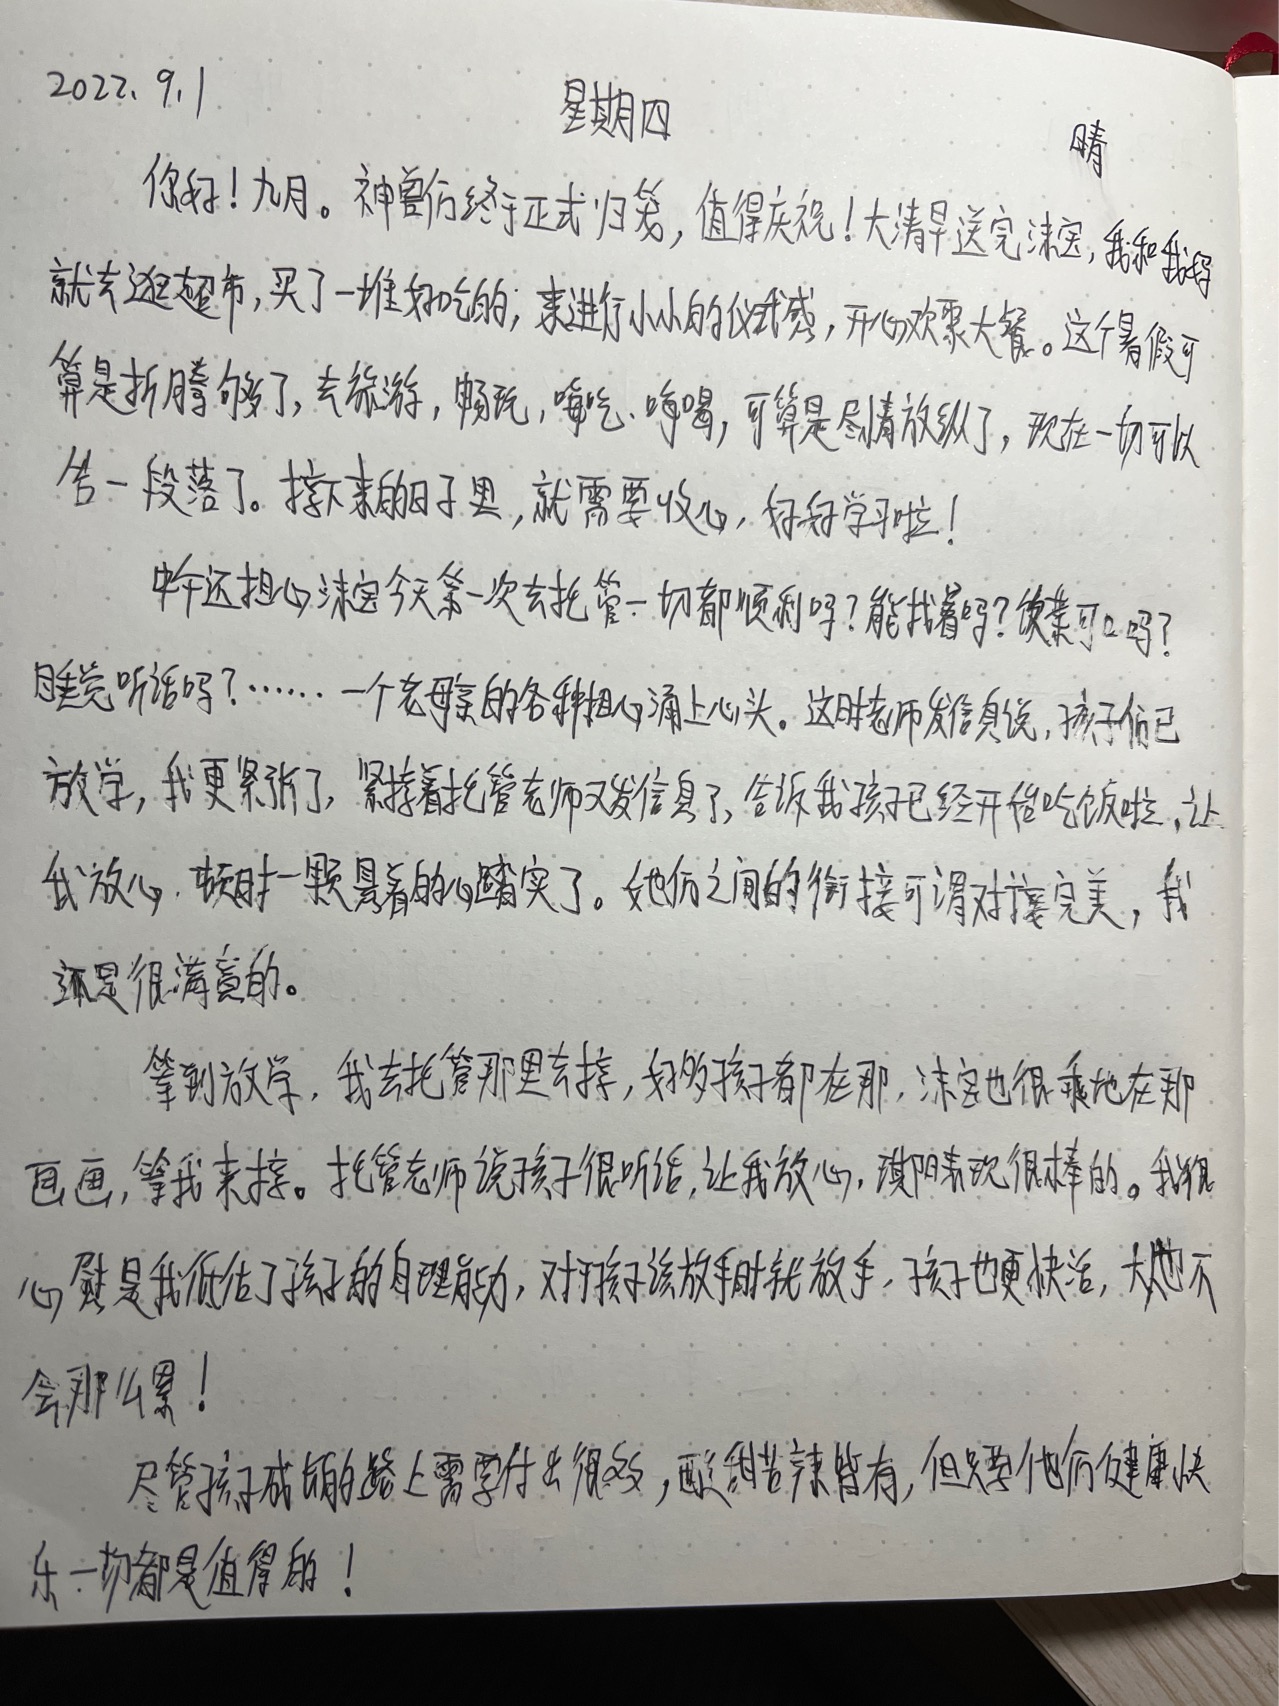 2022.9.1 星期四 晴
你好！九月。神兽们终于正式归笼，值得庆祝！大清早送完沫宝，我和我妈
就去逛超市，买了一堆好吃的，来进行小小的仪式感，开心欢聚大餐。这个暑假可
算是折腾够了，去旅游，畅玩，嗨吃、嗨喝，可算是尽情放纵了，现在一切可以
告一段落了。接下来的日子里，就需要收心，好好学习啦！
中午还担心沫宝今天第一次去托管一切都顺利吗？能找着吗？饭菜可口吗？
睡觉听话吗？……一个老母亲的各种担心涌上心头。这时老师发信息说，孩子们已
放学，我更紧张了，紧接着托管老师又发信息了，告诉我孩子已经开始吃饭啦，让
我放心，顿时一颗悬着的心踏实了。她们之间的衔接可谓对接完美，我
还是很满意的。
等到放学，我去托管那里去接，好多孩子都在那，沫宝也很乖地在那
画画，等我来接。托管老师说孩子很听话，让我放心，表现很棒的。我很
心慰是我低估了孩子的自理能力，对于孩子该放手时就放手，孩子也更快活，大也不
会那么累！
尽管孩子成长的路上需要付出很多，酸甜苦辣皆有，但只要他们健康快
乐一切都是值得的！